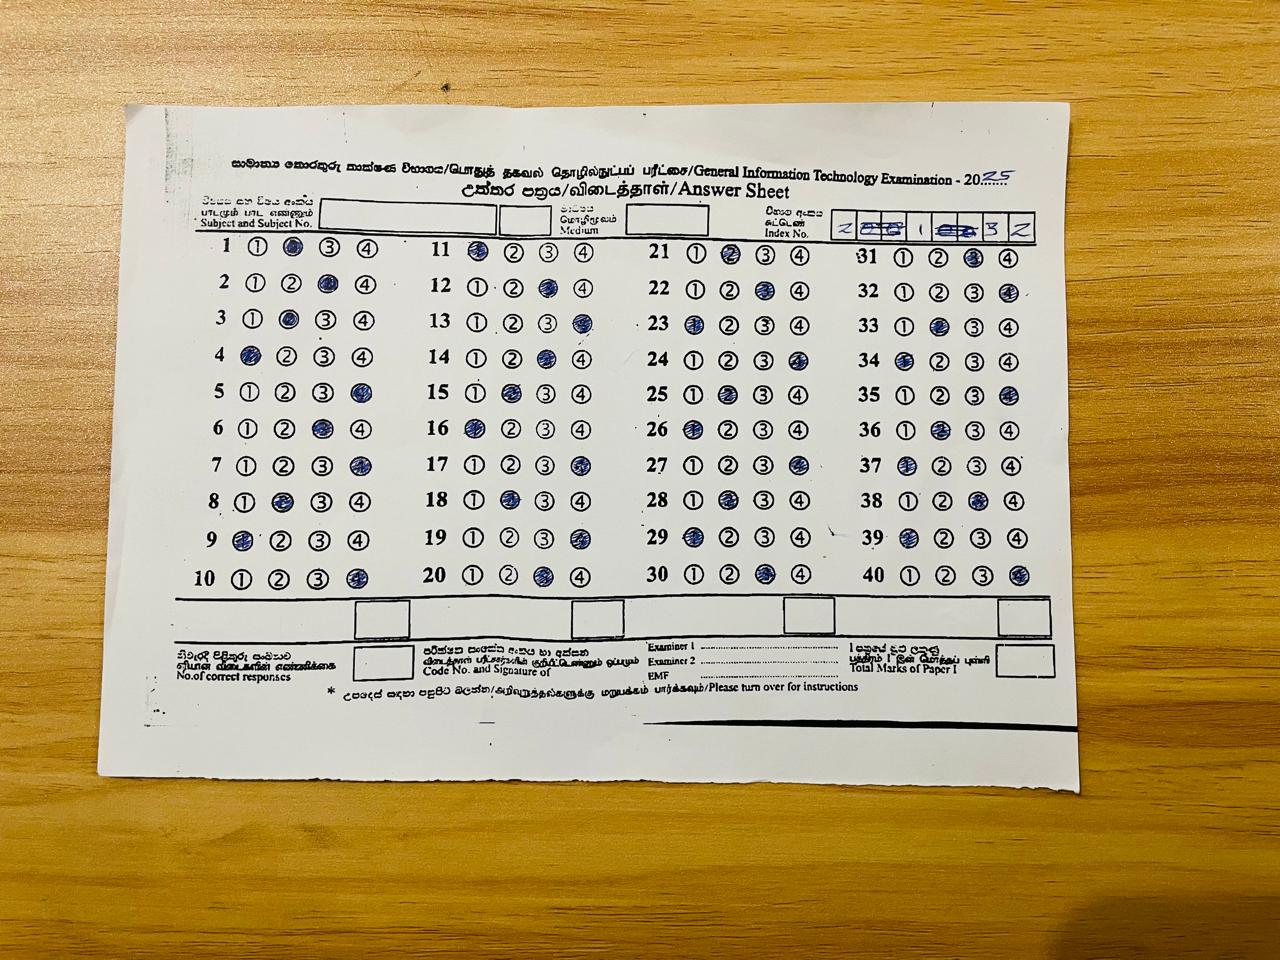 සාමාන්‍ය තොරතුරු තාක්ෂණ විභාගය/பொதுத் தகவல் தொழில்நுட்பப் பரீட்சை/General Information Technology Examination - 2025
උත්තර පත්‍රය/விடைத்தாள்/Answer Sheet
විෂයය සහ විෂය අංකය
பாடமும் பாட எண்ணும்
Subject and Subject No.
මාධ්‍යය
மொழிமூலம்
Medium
විභාග අංකය
சுட்டெண்
Index No.
2 1 3 2
1 ① ③ ④ 11 ② ③ ④ 21 ① ③ ④ 31 ① ② ④
2 ① ② ④ 12 ① ② ④ 22 ① ② ④ 32 ① ② ③
3 ① ③ ④ 13 ① ② ③ 23 ② ③ ④ 33 ① ③ ④
4 ② ③ ④ 14 ① ② ④ 24 ① ② ③ 34 ② ③ ④
5 ① ② ③ 15 ① ③ ④ 25 ① ③ ④ 35 ① ② ③
6 ① ② ④ 16 ② ③ ④ 26 ② ③ ④ 36 ① ③ ④
7 ① ② ③ 17 ① ② ③ 27 ① ② ③ 37 ② ③ ④
8 ① ③ ④ 18 ① ③ ④ 28 ① ③ ④ 38 ① ② ④
9 ② ③ ④ 19 ① ② ③ 29 ② ③ ④ 39 ② ③ ④
10 ① ② ③ 20 ① ② ④ 30 ① ② ④ 40 ① ② ③
නිවැරදි පිළිතුරු සංඛ්‍යාව
சரியான விடைகளின் எண்ணிக்கை
No.of correct responses
පරීක්ෂක සංකේත අංකය හා අත්සන
விடைத்தாள் பரீட்சகர்களின் குறியீட்டெண்ணும் ஒப்பமும்
Code No. and Signature of
Examiner 1
Examiner 2
EMF
I පත්‍රයේ මුළු ලකුණු
பத்திரம் I இன் மொத்தப் புள்ளி
Total Marks of Paper I
* උපදෙස් සඳහා පසුපිට බලන්න/அறிவுறுத்தல்களுக்கு மறுபக்கம் பார்க்கவும்/Please turn over for instructions